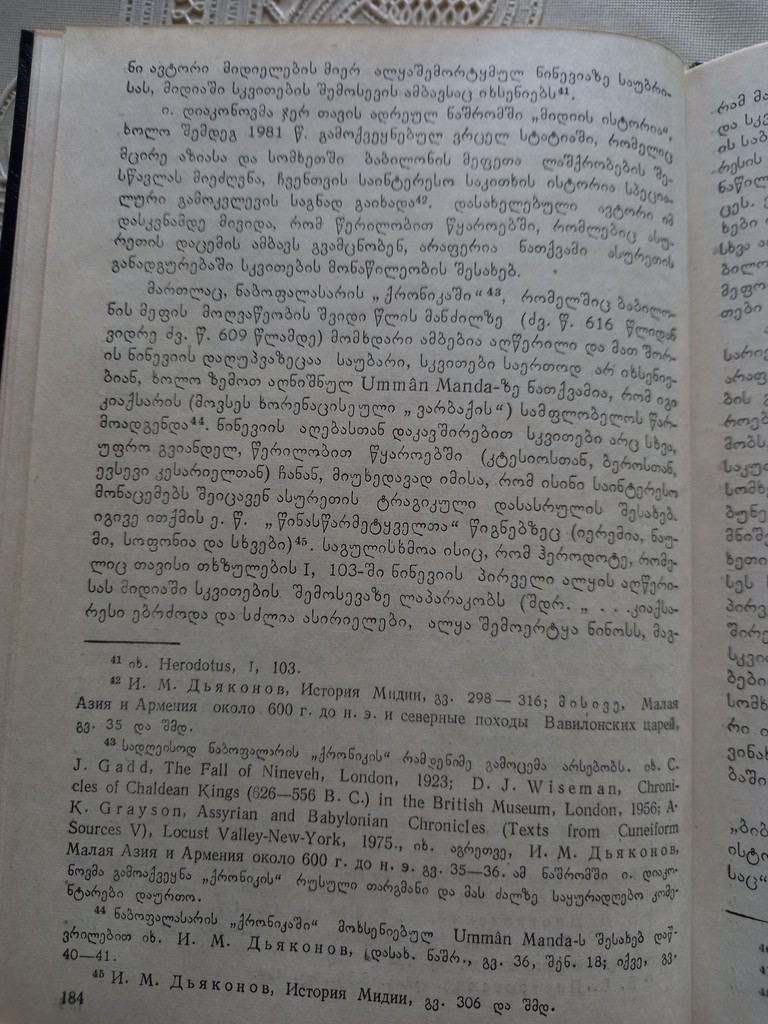 ნი ავტორი მიდიელების მიერ ალყაშემორტყმულ ნინევიაზე საუბრი-
სას, მიდიაში სკვითების შემოსევის ამბავსაც იხსენიებს⁴¹.
ი. დიაკონოვმა ჯერ თავის ადრეულ ნაშრომში „მიდიის ისტორია“,
ხოლო შემდეგ 1981 წ. გამოქვეყნებულ ვრცელ სტატიაში, რომელიც
მცირე აზიასა და სომხეთში ბაბილონის მეფეთა ლაშქრობების შე-
სწავლას მიეძღვნა, ჩვენთვის საინტერესო საკითხის ისტორია სპეცია-
ლური გამოკვლევის საგნად გაიხადა⁴². დასახელებული ავტორი იმ
დასკვნამდე მივიდა, რომ წერილობით წყაროებში, რომლებიც ასუ-
რეთის დაცემის ამბავს გვამცნობენ, არაფერია ნათქვამი ასურეთის
განადგურებაში სკვითების მონაწილეობის შესახებ.
მართლაც, ნაბოფალასარის „ქრონიკაში“⁴³, რომელშიც ბაბილო-
ნის მეფის მოღვაწეობის შვიდი წლის მანძილზე (ძვ. წ. 616 წლიდან
ვიდრე ძვ. წ. 609 წლამდე) მომხდარი ამბებია აღწერილი და მათ შორ-
ის ნინევიის დაღუპვაზეცაა საუბარი, სკვითები საერთოდ არ იხსენიე-
ბიან, ხოლო ზემოთ აღნიშნულ Ummân Manda-ზე ნათქვამია, რომ იგი
კიაქსარის (მოვსეს ხორენაცისეული „ვარბაქის“) სამფლობელოს წარ-
მოადგენდა⁴⁴. ნინევიის აღებასთან დაკავშირებით სკვითები არც სხვა,
უფრო გვიანდელ, წერილობით წყაროებში (კტესიოსთან, ბეროსთან,
ევსევი კესარიელთან) ჩანან, მიუხედავად იმისა, რომ ისინი საინტერესო
მონაცემებს შეიცავენ ასურეთის ტრაგიკული დასასრულის შესახებ.
იგივე ითქმის ე. წ. „წინასწარმეტყველთა“ წიგნებზეც (იერემია, ნაუ-
მი, სოფონია და სხვები)⁴⁵. საგულისხმოა ისიც, რომ ჰეროდოტე, რომე-
ლიც თავისი თხზულების I, 103-ში ნინევიის პირველი ალყის აღწერი-
სას მიდიაში სკვითების შემოსევაზე ლაპარაკობს (შდრ. „ . . .კიაქსა-
რესი ებრძოდა და სძლია ასირიელები, ალყა შემოერტყა ნინოსს, მაგ-
⁴¹ იხ. Herodotus, I, 103.
⁴² И. М. Дьяконов, История Мидии, გვ. 298 — 316; მისივე, Малая
Азия и Армения около 600 г. до н. э. и северные походы Вавилонских царей,
გვ. 35 და შმდ.
⁴³ სადღეისოდ ნაბოფალარის „ქრონიკის“ რამდენიმე გამოცემა არსებობს. იხ. C.
J. Gadd, The Fall of Nineveh, London, 1923; D. J. Wiseman, Chroni-
cles of Chaldean Kings (626—556 B. C.) in the British Museum, London, 1956; A.
K. Grayson, Assyrian and Babylonian Chronicles (Texts from Cuneiform
Sources V), Locust Valley-New-York, 1975., იხ. აგრეთვე, И. М. Дьяконов,
Малая Азия и Армения около 600 г. до н. э. გვ. 35—36. ამ ნაშრომში ი. დიაკო-
ნოვმა გამოაქვეყნა „ქრონიკის“ რუსული თარგმანი და მას ძალზე საყურადღებო კომე-
ნტარები დაურთო.
⁴⁴ ნაბოფალასარის „ქრონიკაში“ მოხსენიებულ Ummân Manda-ს შესახებ დაწ-
ვრილებით იხ. И. М. Дьяконов, დასახ. ნაშრ., გვ. 36, შენ. 18; იქვე, გვ.
40—41.
⁴⁵ И. М. Дьяконов, История Мидии, გვ. 306 და შმდ.
184
რამ მა
და სკვ
ის საბ
რესის
ნაწილ
ცეს.
ხები
სხვა
ბილო
მეფო
თები
სარიე
არაფ
ბის
როებ
მობს
საკუთ
სომხ
ბუნე
მნიშ
ხეთი
სეს
პირვ
შირე
სკვი
ბები
სომხ
რი
ვინა
ბაში
„ბიბ
ისტო
საც“